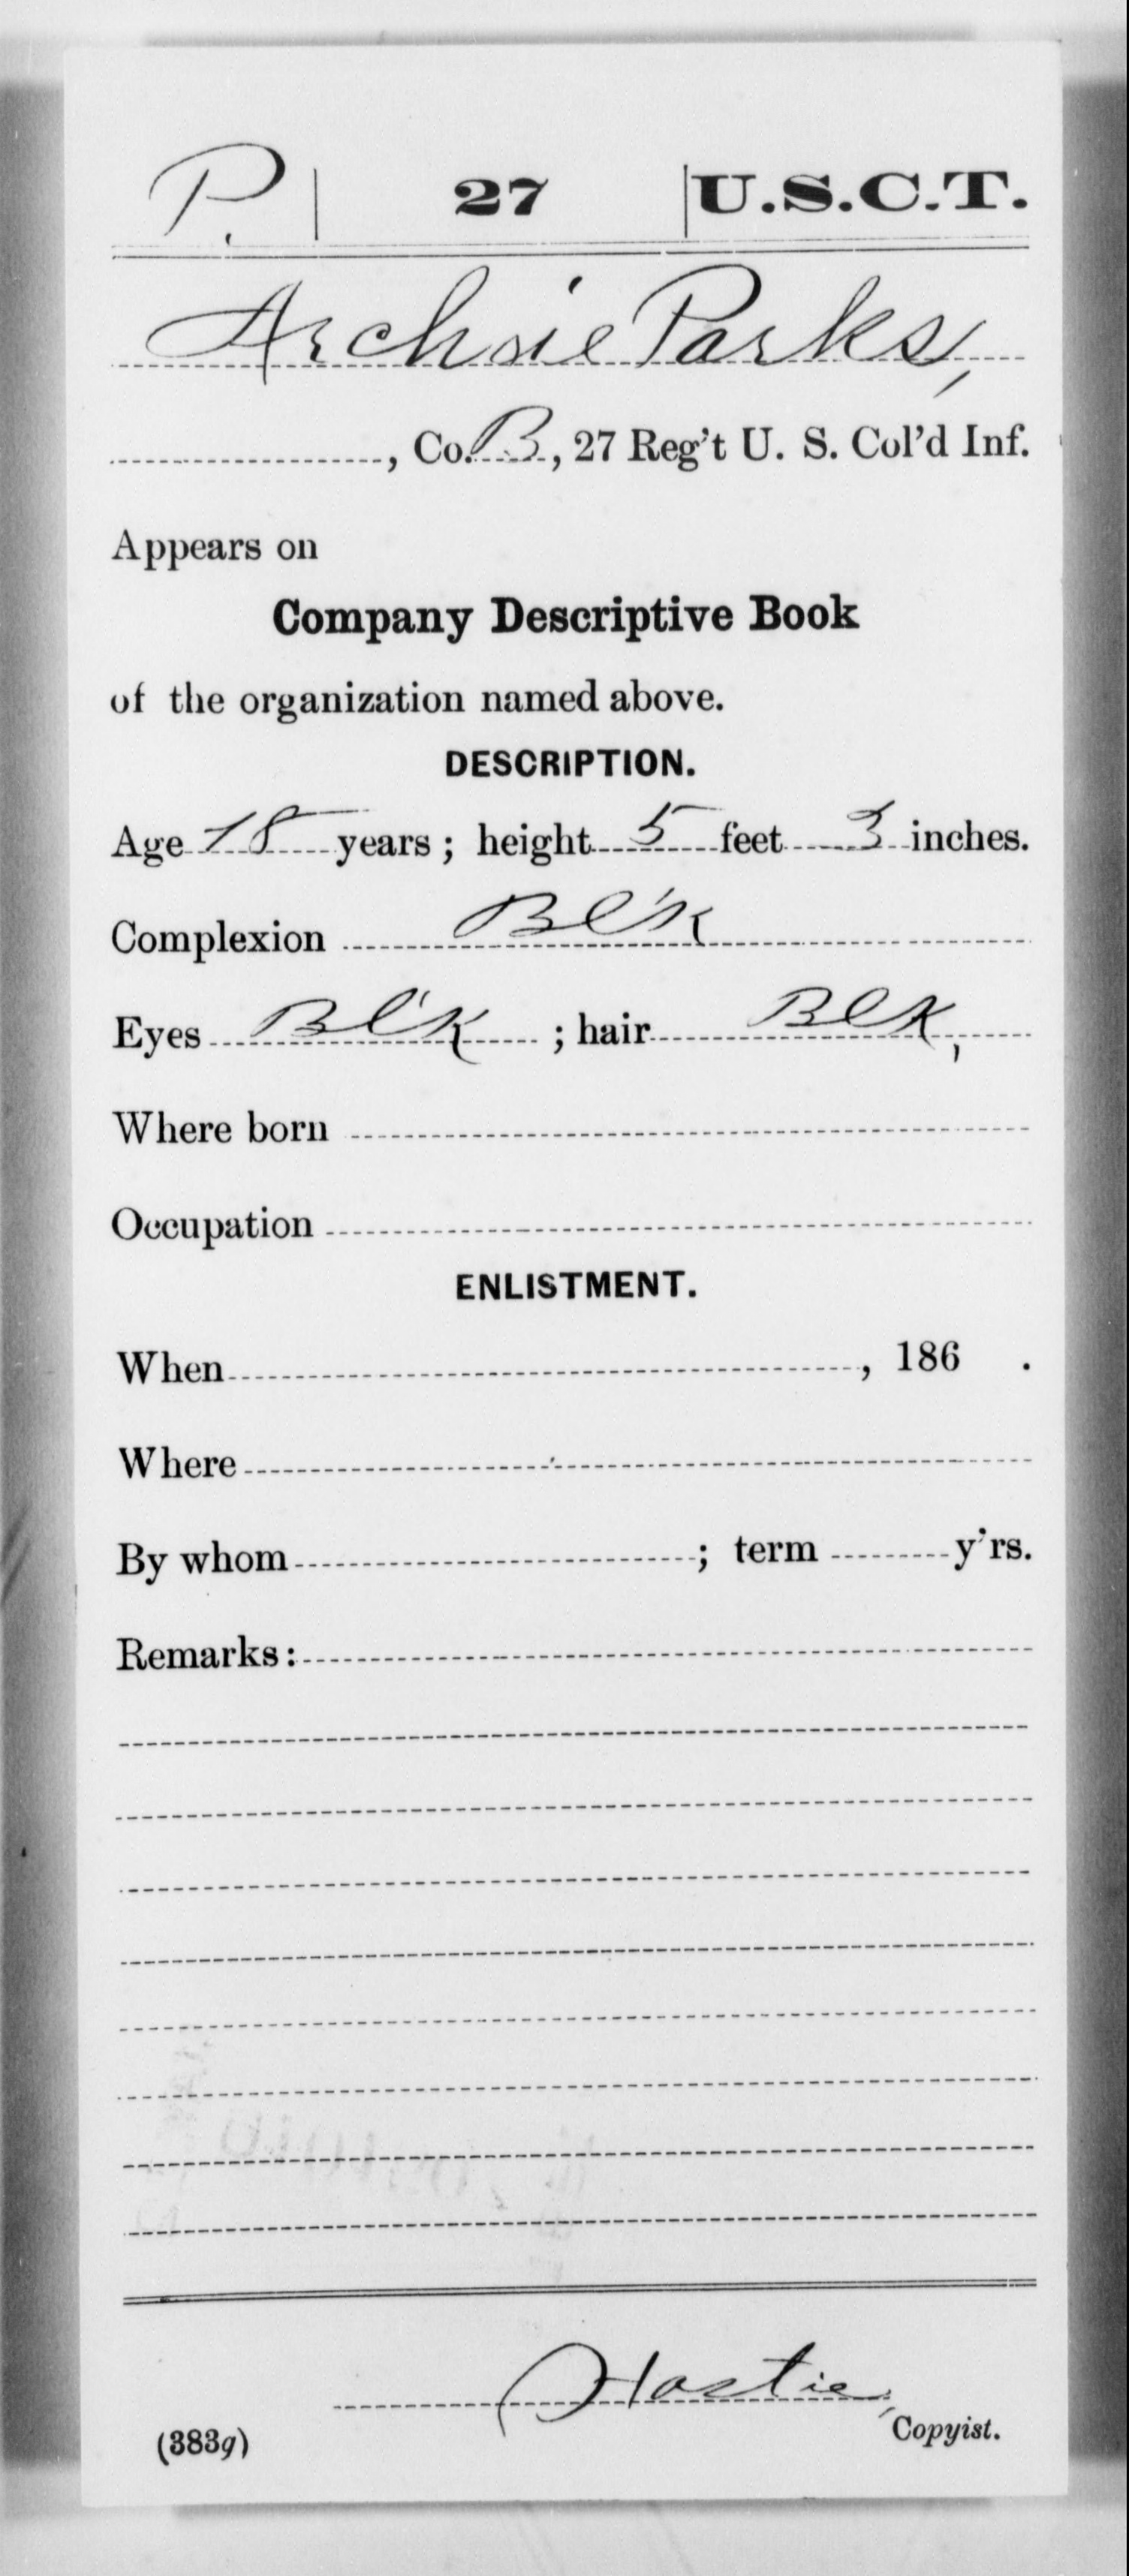 P. 27 U.S.C.T.
Archie Parks,
, Co. B, 27 Reg't U. S. Col'd Inf.
Appears on
Company Descriptive Book
of the organization named above.
DESCRIPTION.
Age 18 years; height 5 feet 3 inches.
Complexion Bl'k
Eyes Bl'k ; hair Blk,
Where born
Occupation
ENLISTMENT.
When , 186 .
Where
By whom ; term y'rs.
Remarks:
Hastie,
Copyist.
(383g)